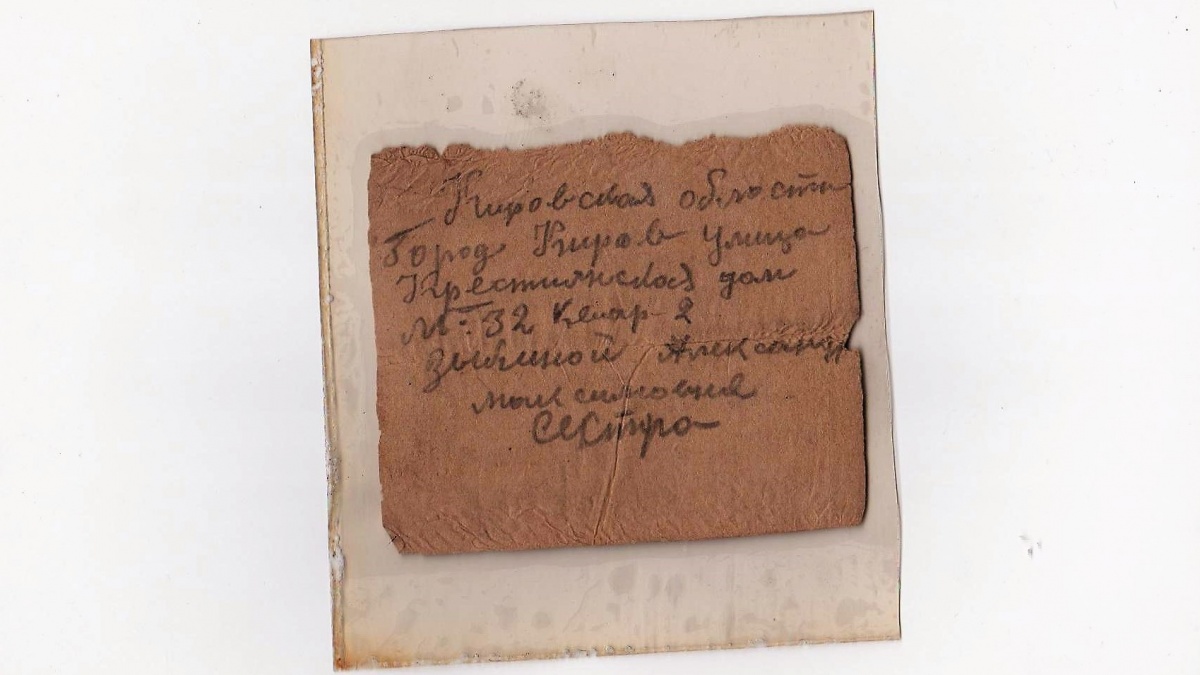 Кировская область
Город Киров улица
Крестиянская дом
№ 32 Квар-2
Зыкиной Александр
максимовне
Сестра